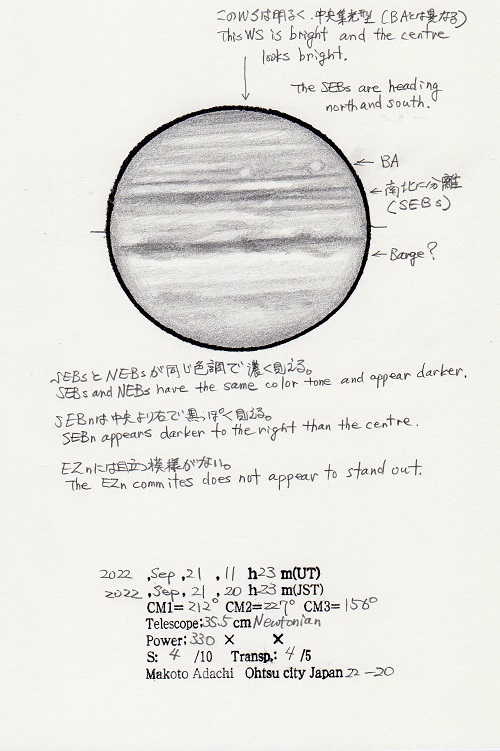 このWSは明るく、中央集光型(BAとは異なる)
This WS is bright and the centre
looks bright.
The SEBs are heading
north and south.
← BA
← 南北に分離
(SEBs)
← Barge?
SEBsとNEBsが同じ色調で濃く見える。
SEBs and NEBs have the same color tone and appear darker.
SEBnは中央より右で黒っぽく見える。
SEBn appears darker to the right than the centre.
EZnには目立つ模様がない。
The EZn commites does not appear to stand out.
2022 ,Sep ,21 ,11 h23 m(UT)
2022 ,Sep ,21 ,20 h23 m(JST)
CM1=212° CM2=227° CM3=156°
Telescope:35.5 cm Newtonian
Power:330 × ×
S: 4 /10 Transp.: 4 /5
Makoto Adachi Ohtsu city Japan 22-20